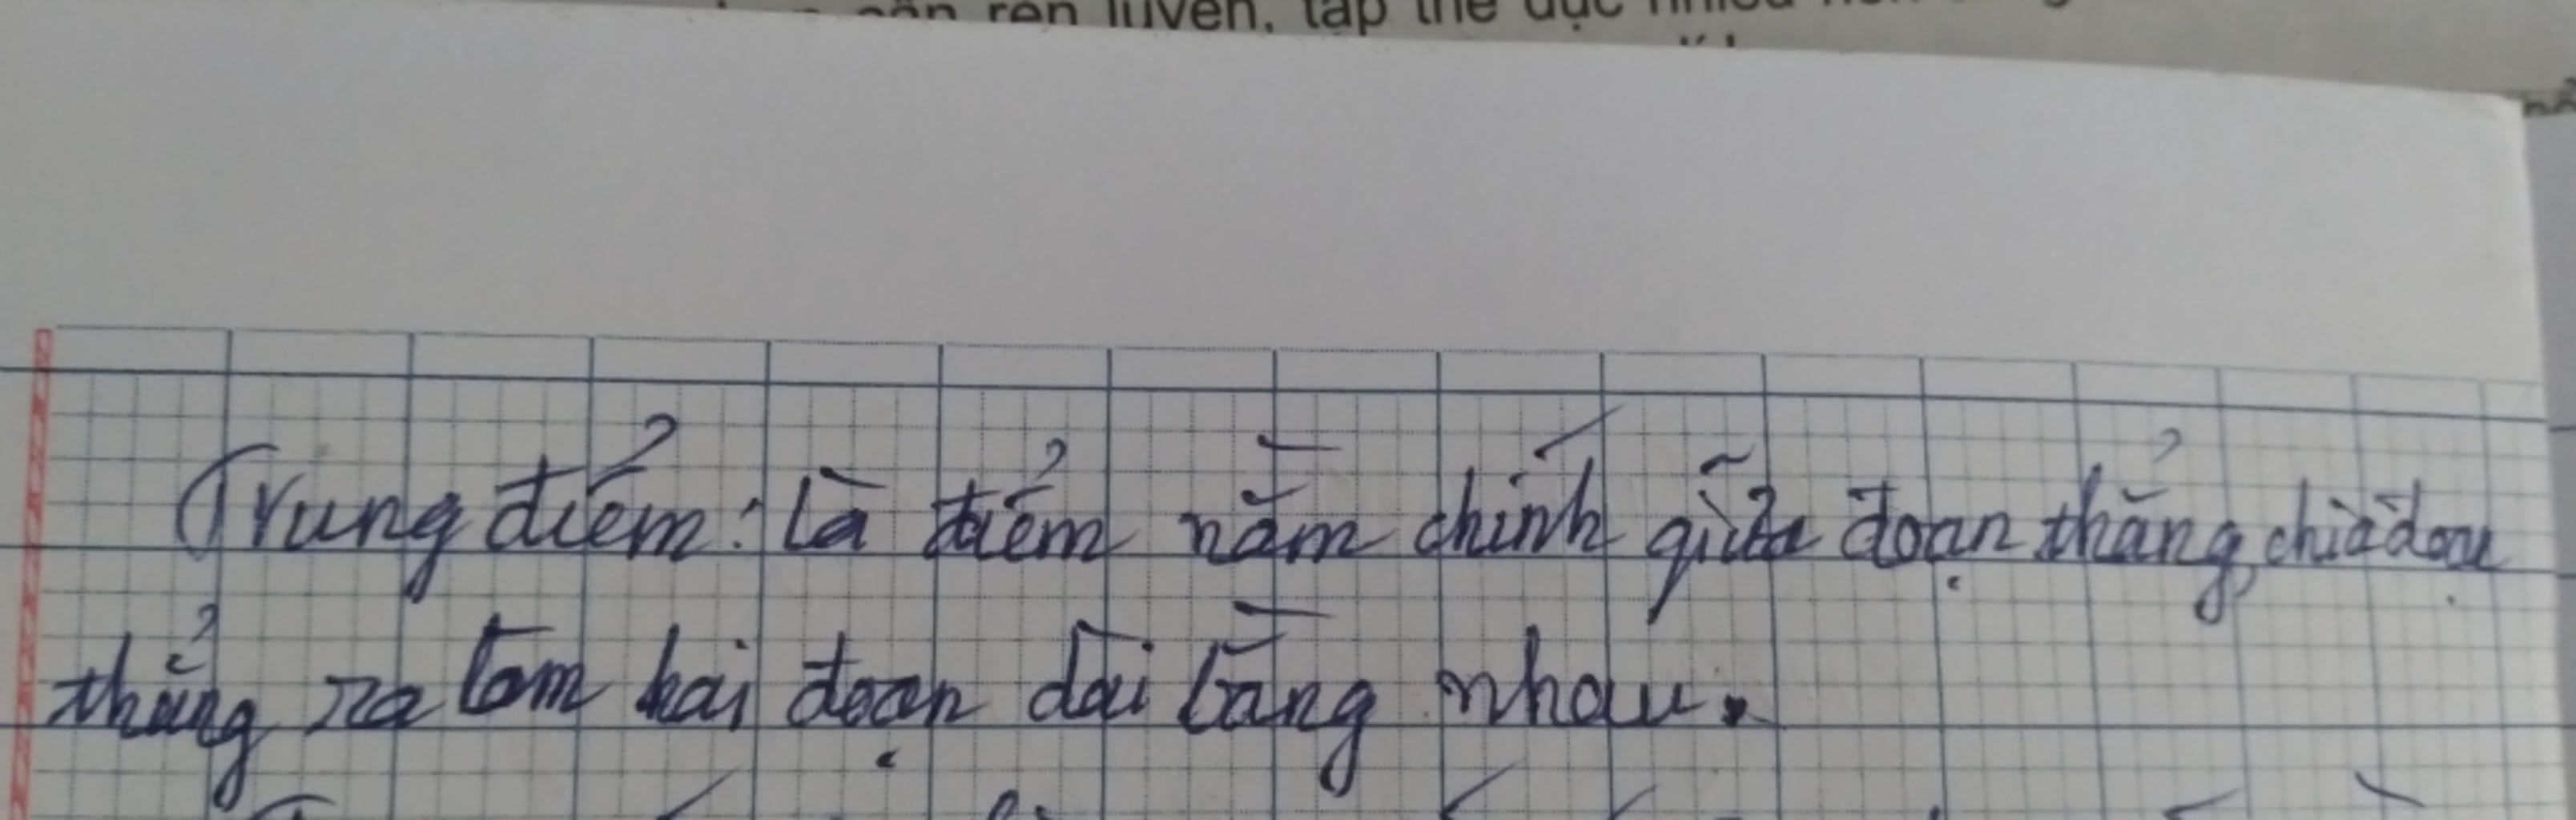 rèn luyện, tập thể dục nhiều
Trung điểm: Là điểm nằm chính giữa đoạn thẳng, chia đoạn
thẳng ra làm hai đoạn dài bằng nhau.